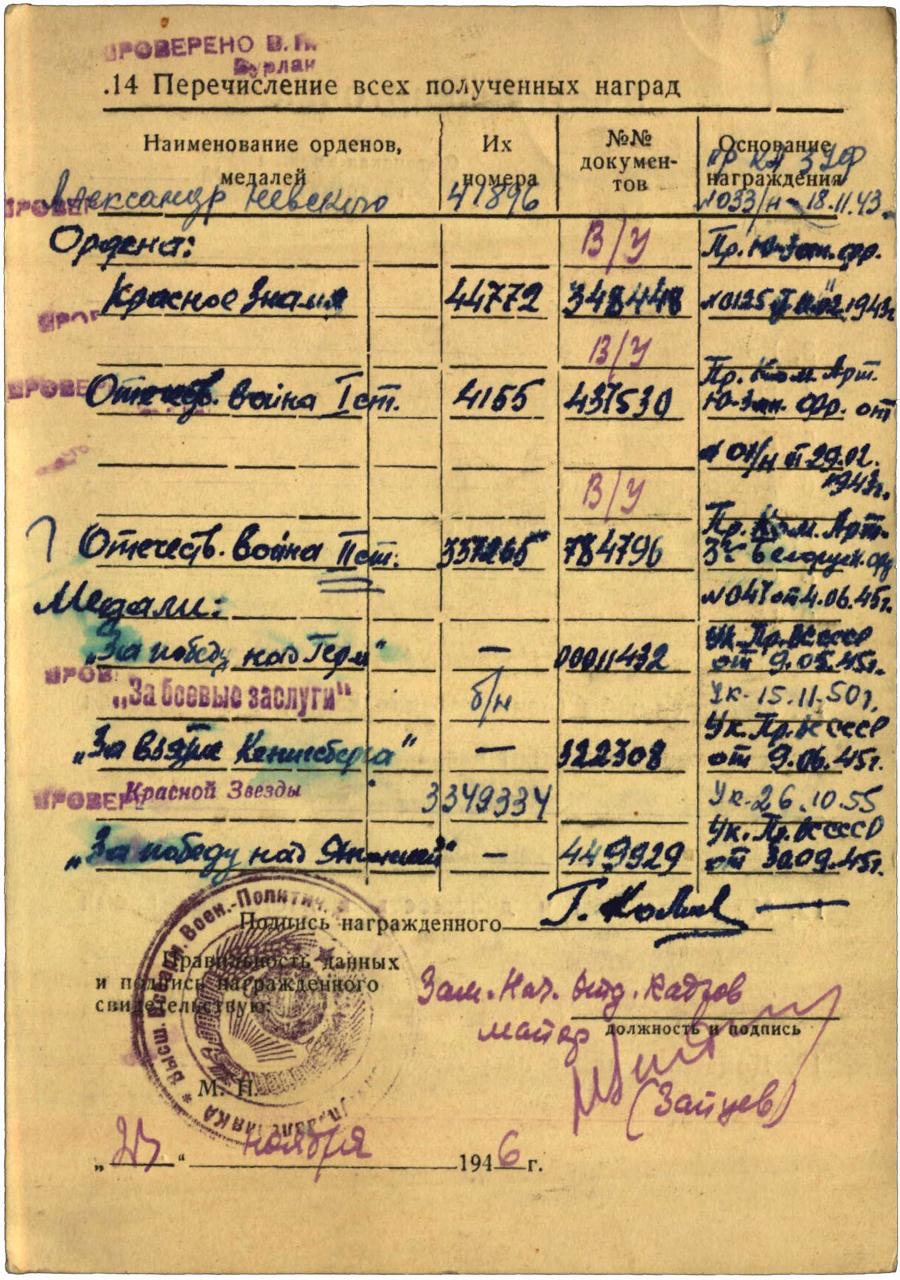 ПРОВЕРЕНО В.П.
Бурлак
.14 Перечисление всех полученных наград
Наименование орденов, медалей
Их номера
№№ докумен-тов
Основание награждения
Александр Невского 41896 №033/н - 18.11.43.
Ордена: В/У Пр. Ю-Зап. фр.
Красное Знамя 44772 348448 №0125 1943г
В/У
Отечеств. война I ст. 4155 437530 Пр. Ком. Арт. Ю-Зап. фр. от
29.02. 1943г.
В/У
Отечеств. война II ст. 784796 Пр. Ком. Арт. 3го Белорусск. фр
Медали: №047 от 4.06.45г.
„За победу над Герм" — 00011432 Ук. Пр. ВС СССР от 9.05.45г.
ПРОВЕ
„За боевые заслуги" б/н Ук-15.11.50г.
„За взятие Кенигсберга" — 322308 Ук. Пр. ВС СССР от 9.06.45г.
ПРОВЕРЕ
Красной Звезды 3349334 Ук-26.10.55
„За победу над Японией" — 449929 Ук. Пр. ВС СССР от 30.09.45г.
Подпись награжденного
Правильность данных
и подпись награжденного
свидетельствую:
Зам. Нач. отд. кадров
майор
должность и подпись
(Зайцев)
М. П.
Высш. Всеарм. Воен.-Политич.
„ " ноября 1946 г.